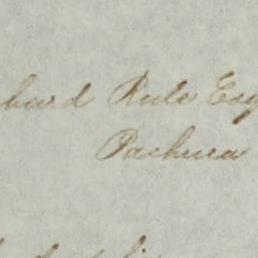 chard Rule Esq
Pachuca